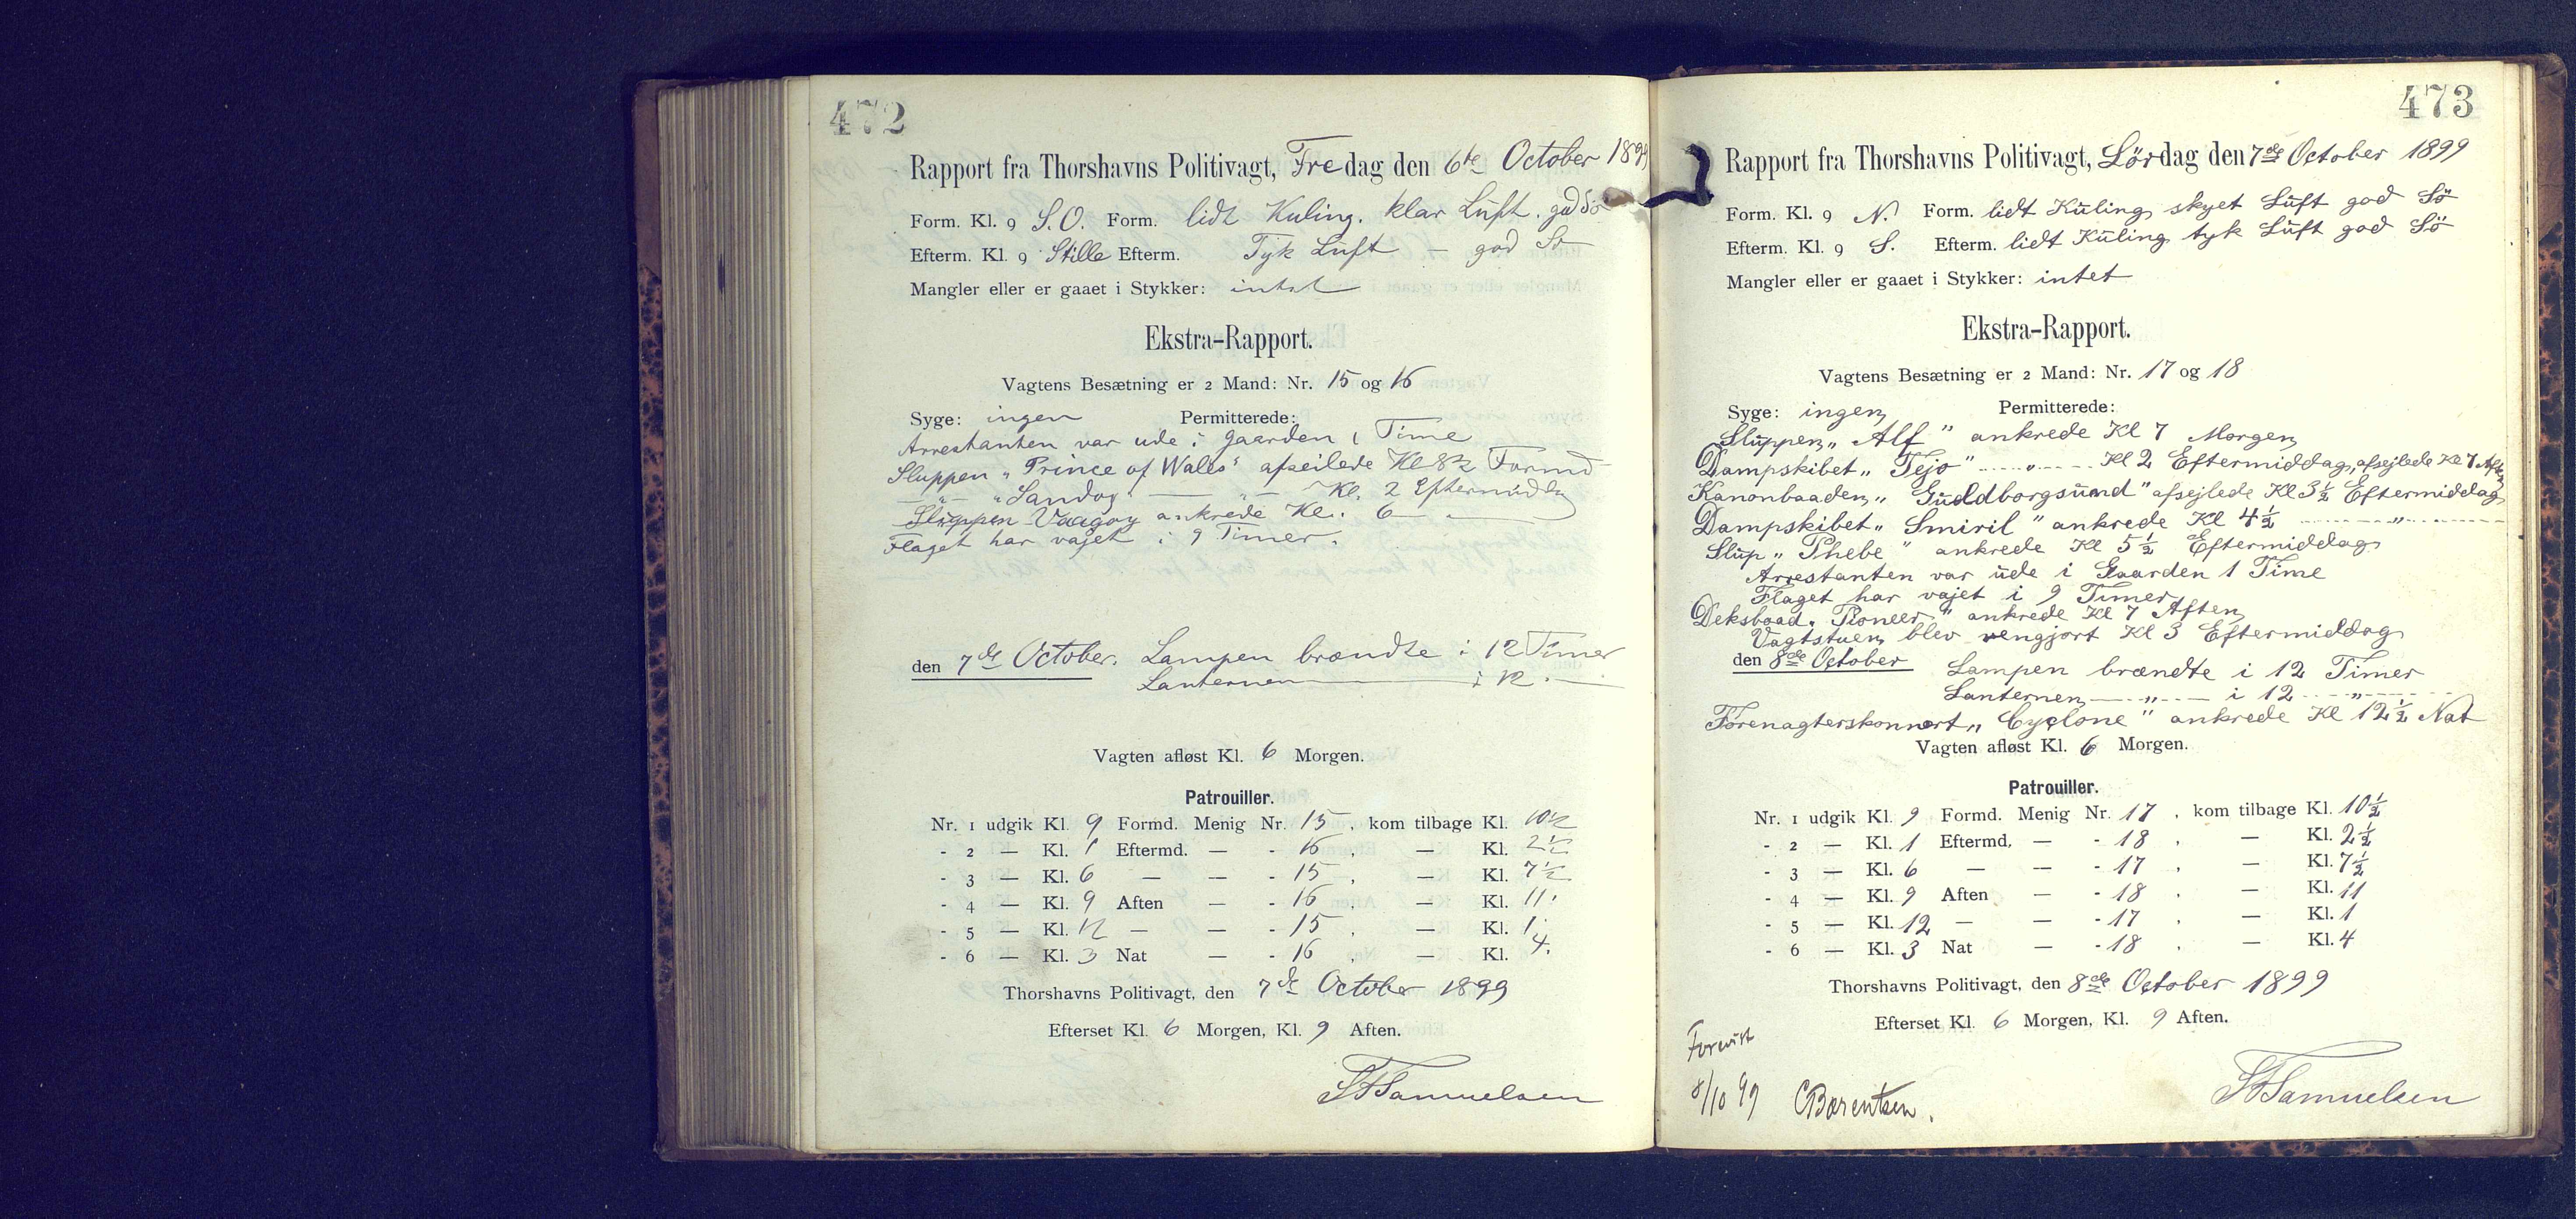 472
Rapport fra Thorshavns Politivagt, Fredag den 6te October 1899
Form. Kl. 9 S.O. Form. lidt Kuling. klar Luft. god Sö
Efterm. Kl. 9 Stille Efterm. Tyk Luft — god Sö
Mangler eller er gaaet i Stykker: intet
Ekstra-Rapport.
Vagtens Besætning er 2 Mand: Nr. 15 og 16
Syge: ingen Permitterede:
Arrestanten var ude i Gaarden 1 Time
Sluppen „Prince of Wales" afseilede Kl 8½ Formd
—"— „Sandoy" — " — Kl. 2 Eftermiddg
Sluppen Vaagoy ankrede Kl. 6 — . —
Flaget har vajet i 9 Timer.
den 7de October. Lampen brændte i 12 Timer
Lanternen — i 12 . —
Vagten afløst Kl. 6 Morgen.
Patrouiller.
Nr. 1 udgik Kl. 9 Formd. Menig Nr. 15 , kom tilbage Kl. 10½
- 2 — Kl. 1 Eftermd. — - 16 , — Kl. 2½
- 3 — Kl. 6 — — - 15 , — Kl. 7½
- 4 — Kl. 9 Aften — - 16 , — Kl. 11.
- 5 — Kl. 12 — — - 15 , — Kl. 1.
- 6 — Kl. 3 Nat — - 16 , — Kl. 4.
Thorshavns Politivagt, den 7de October 1899
Efterset Kl. 6 Morgen, Kl. 9 Aften.
Samuelsen
473
Rapport fra Thorshavns Politivagt, Lördag den 7de October 1899
Form. Kl. 9 N. Form. lidt Kuling skyet Luft god Sö
Efterm. Kl. 9 S. Efterm. lidt Kuling tyk Luft god Sö
Mangler eller er gaaet i Stykker: intet
Ekstra-Rapport.
Vagtens Besætning er 2 Mand: Nr. 17 og 18
Syge: ingen Permitterede:
Sluppen „Alf" ankrede Kl 7 Morgen
Dampskibet „Tejo" — „ — Kl 2 Eftermiddag, afsejlede Kl 7 Aften
Kanonbaaden „Guldborgsund" afsejlede Kl 3½ Eftermiddag
Dampskibet „Smiril" ankrede Kl 4½ — „ —
Slup „Phebe" ankrede Kl 5½ Eftermiddag
Arrestanten var ude i Gaarden 1 Time
Flaget har vajet i 9 Timer
Deksbaad „Pioneer" ankrede Kl 7 Aften
Vagtstuen blev rengjort Kl 3 Eftermiddag
den 8de October Lampen brændte i 12 Timer
Lanternen — „ — i 12 — „ —
Forenagterskonnert „Cyclone" ankrede Kl 12½ Nat
Vagten afløst Kl. 6 Morgen.
Patrouiller.
Nr. 1 udgik Kl. 9 Formd. Menig Nr. 17 , kom tilbage Kl. 10½
- 2 — Kl. 1 Eftermd. — - 18 , — Kl. 2½
- 3 — Kl. 6 — — - 17 , — Kl. 7½
- 4 — Kl. 9 Aften — - 18 , — Kl. 11
- 5 — Kl. 12 — — - 17 , — Kl. 1
- 6 — Kl. 3 Nat — - 18 , — Kl. 4
Thorshavns Politivagt, den 8de October 1899
Efterset Kl. 6 Morgen, Kl. 9 Aften.
Forevist
8/10 99 CBærentsen.
Samuelsen